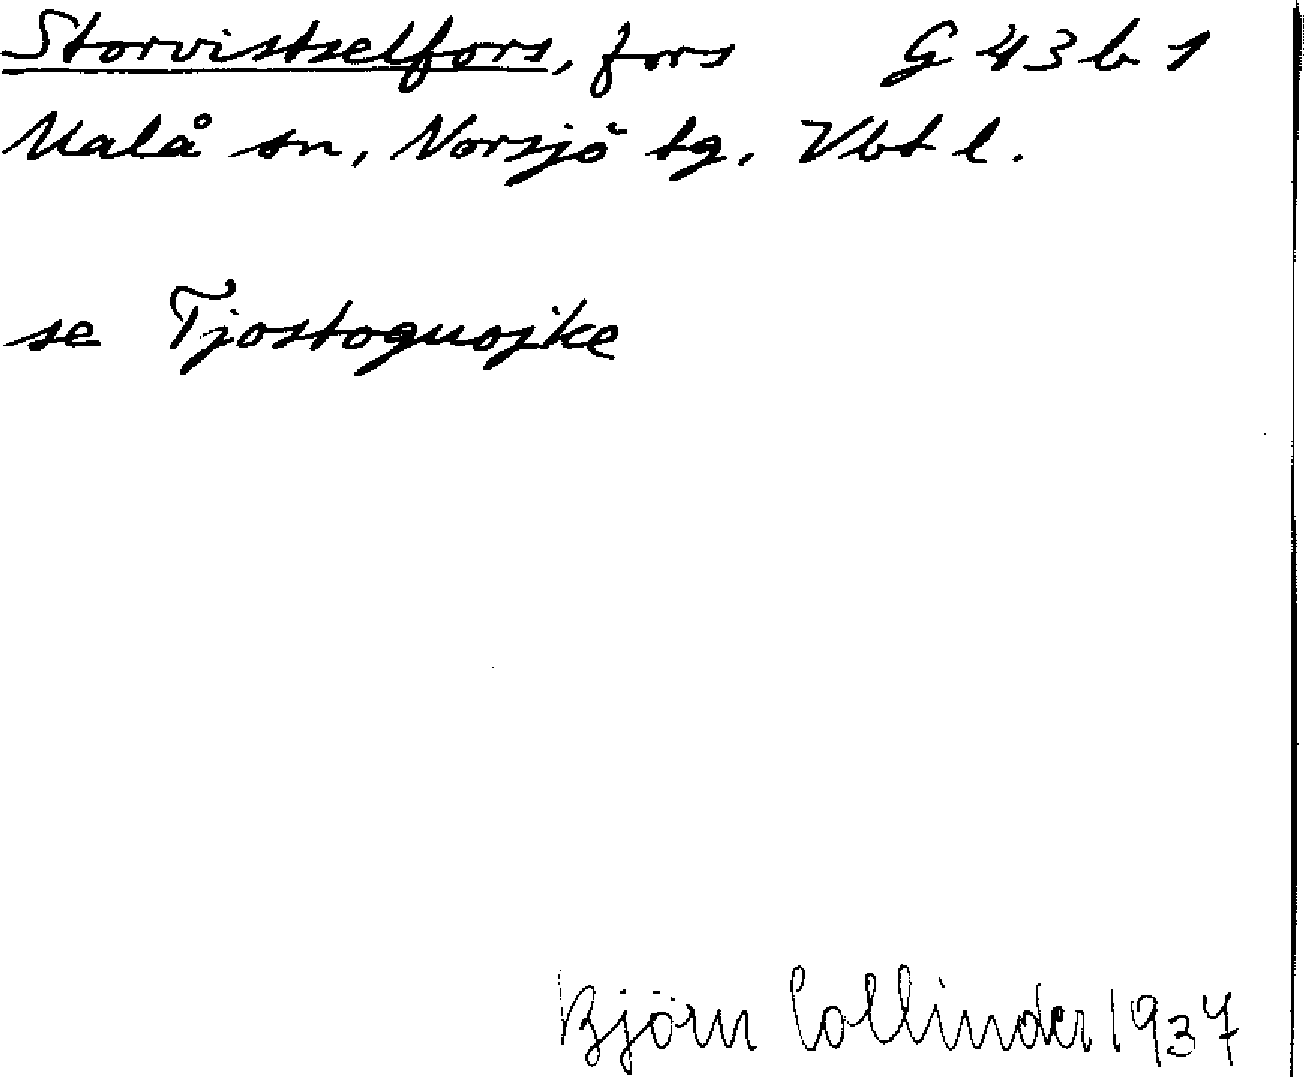 Storvistselfors, fors G 43 b 1
Malå sn, Norsjö tg, Vbt l.
se Tjostoguojke
Björn Collinder 1937